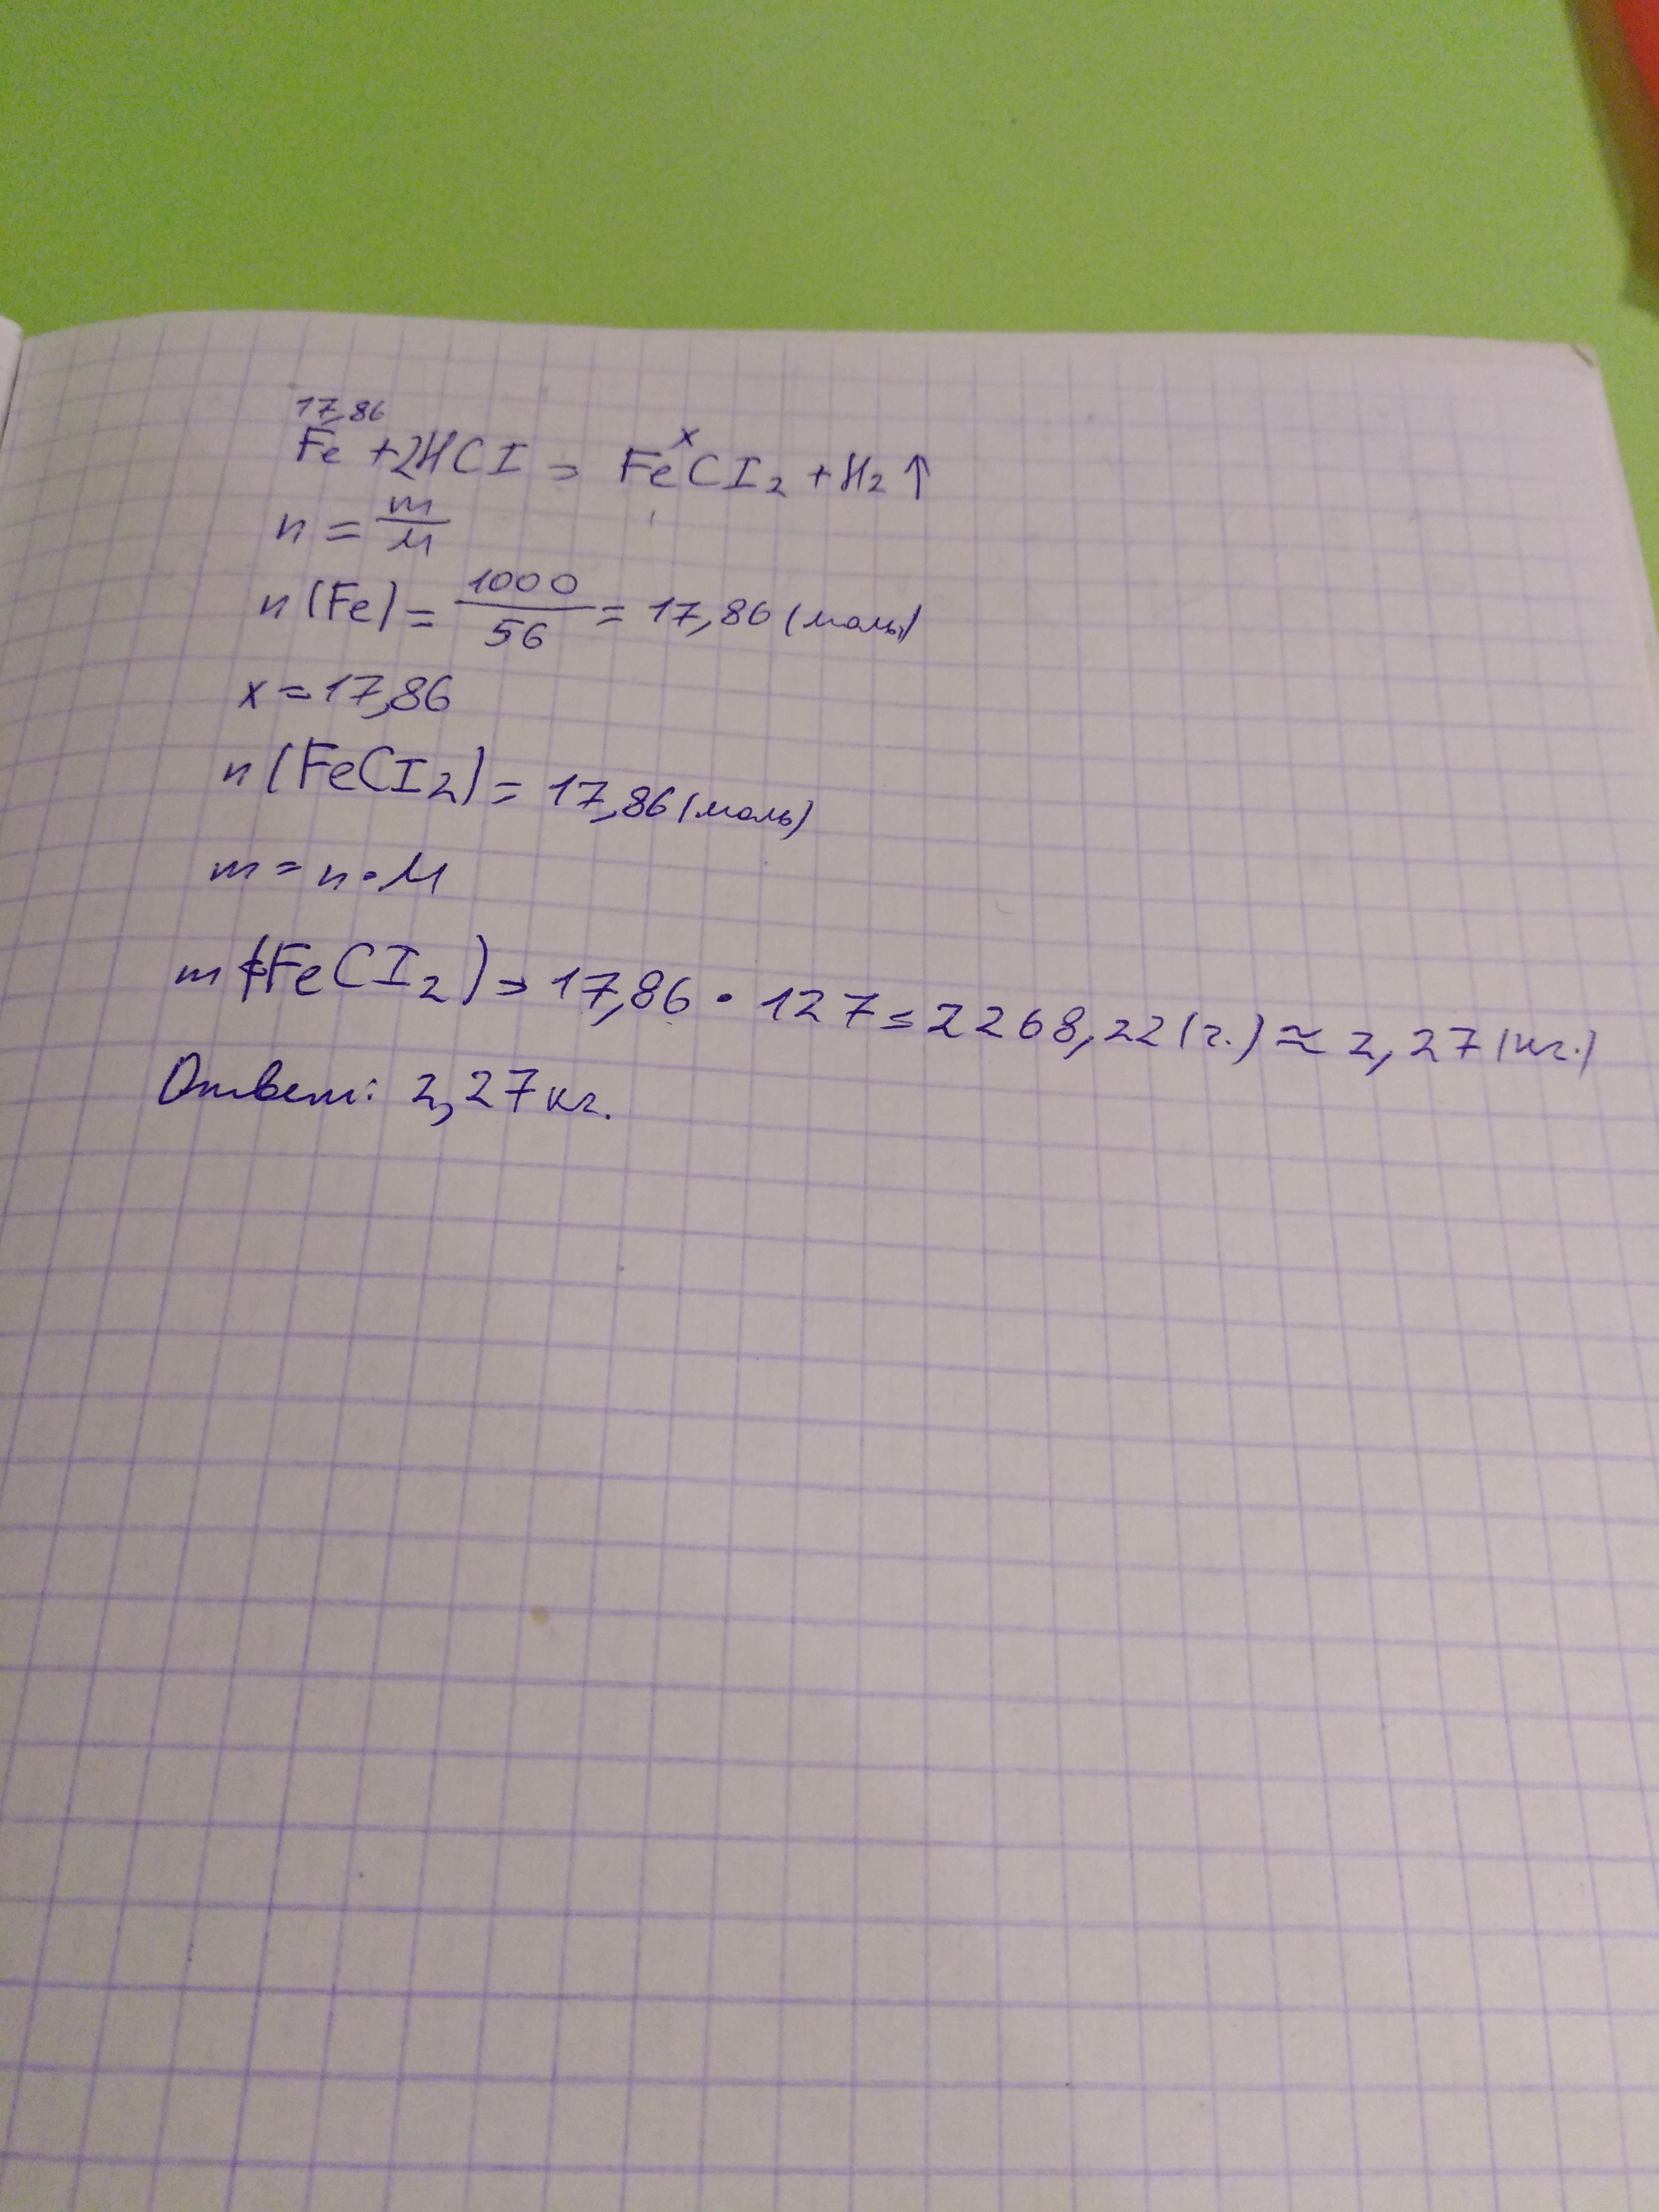 17,86 x
Fe + 2HCl = FeCl₂ + H₂ ↑
n = m/M
n (Fe) = 1000/56 = 17,86 (моль)
x = 17,86
n (FeCl₂) = 17,86 (моль)
m = n · M
m (FeCl₂) = 17,86 · 127 = 2268,22 (г.) ≈ 2,27 (кг.)
Ответ: 2,27 кг.